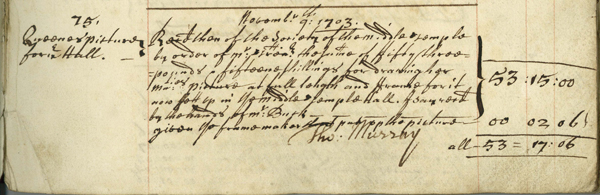 75.
Novemb: yᵉ 9: 1703.
Queenes picture
for yᵉ Hall.
Recd then of the Society of the middle Temple
by order of Mr Treãr the sume of fifty three
pounds & fifteene shillings for drawing her
Maᵗˢ picture at full length and frame for it
now sett up in yᵉ middle Temple hall. I say recd
by the hands of Mr Buck
53 : 15 : 00
given yᵉ frame maker putt up the picture
00 02 06
Tho: Murray
all 53 = 17 : 06